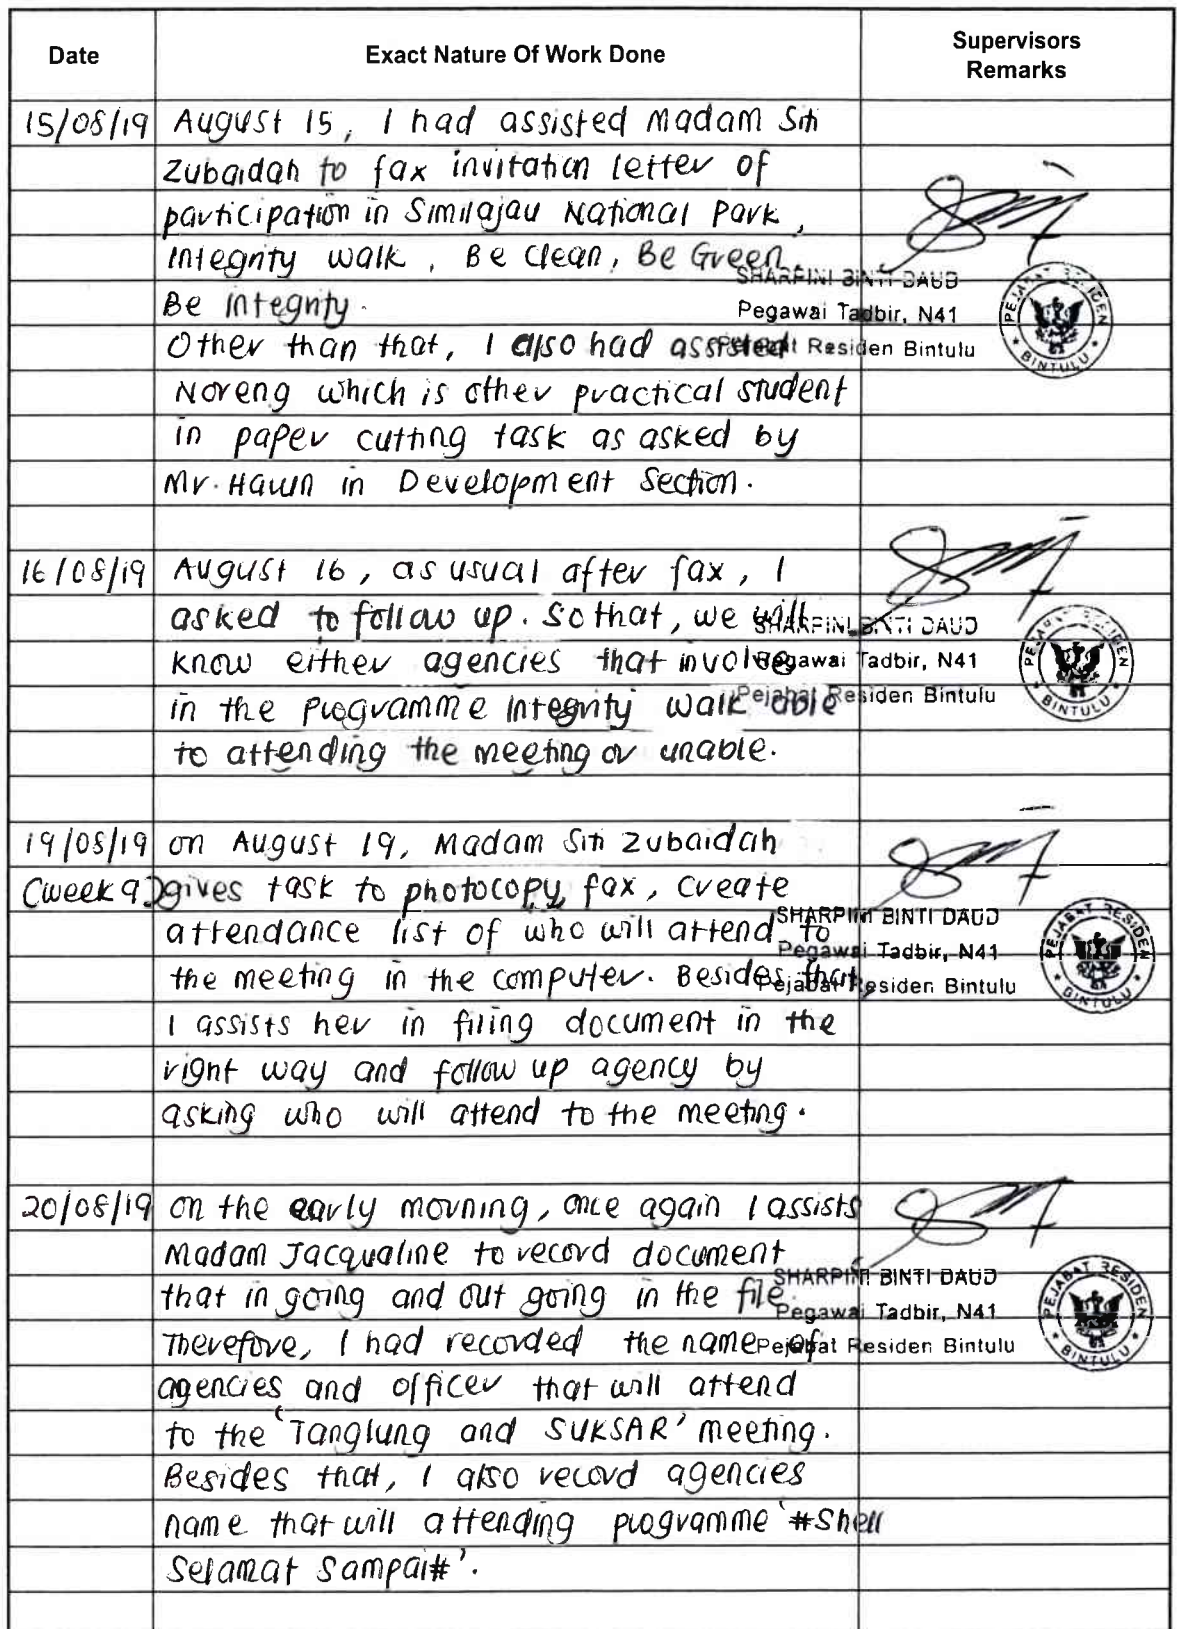 Date Exact Nature Of Work Done Supervisors
Remarks
15/08/19 August 15, I had assisted Madam Siti
Zubaidah to fax invitation letter of
participation in Similajau National Park,
Integrity walk, Be Clean, Be Green,
Be Integrity.
Other than that, I also had assisted
Noreng which is other practical student
in paper cutting task as asked by
Mr. in Development Section.
SHARPINI BINTI DAUD
Pegawai Tadbir, N41
Pejabat Residen Bintulu
PEJABAT RESIDEN
* BINTULU *
16/08/19 August 16, as usual after fax, I
asked to follow up. So that, we will
know either agencies that involve
in the programme Integrity walk able
to attending the meeting or unable.
SHARPINI BINTI DAUD
Pegawai Tadbir, N41
Pejabat Residen Bintulu
PEJABAT RESIDEN
* BINTULU *
19/08/19 on August 19, Madam Siti Zubaidah
(week 9) gives task to photocopy, fax, create
attendance list of who will attend to
the meeting in the computer. Besides that,
I assists her in filing document in the
right way and follow up agency by
asking who will attend to the meeting.
SHARPINI BINTI DAUD
Pegawai Tadbir, N41
Pejabat Residen Bintulu
PEJABAT RESIDEN
* BINTULU *
20/08/19 on the early morning, once again I assists
Madam Jacqualine to record document
that in going and out going in the file.
Therefore, I had recorded the name of
agencies and officer that will attend
to the 'Tanglung and SUKSAR' meeting.
Besides that, I also record agencies
name that will attending programme '#Shell
Selamat Sampai#'.
SHARPINI BINTI DAUD
Pegawai Tadbir, N41
Pejabat Residen Bintulu
PEJABAT RESIDEN
* BINTULU *